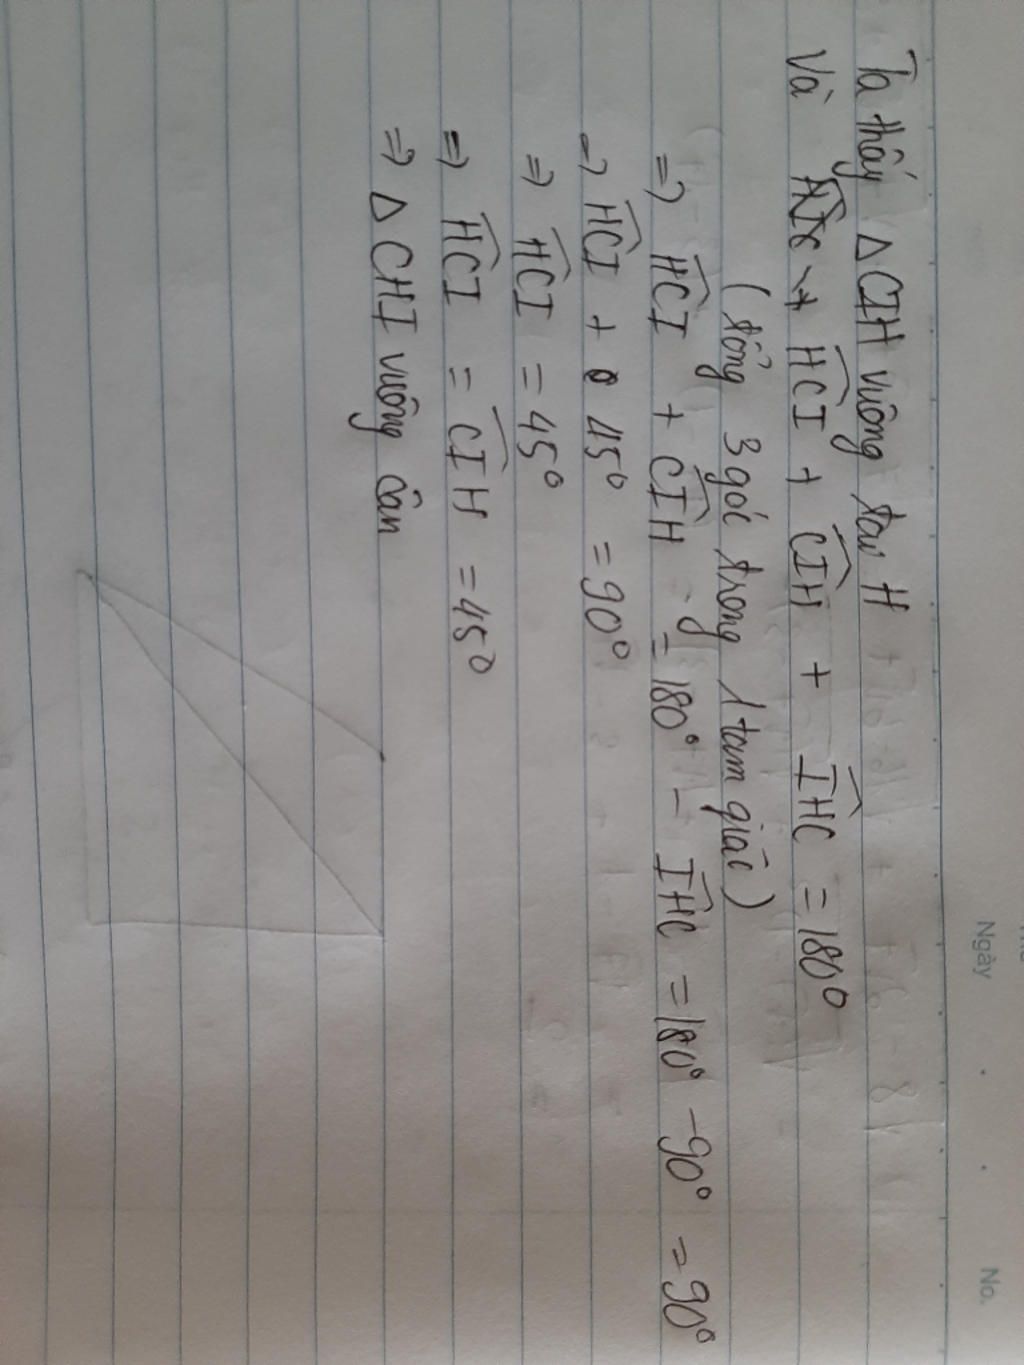 Ngày No.
Ta thấy Δ CIH vuông tại H
Và HCI + CIH + IHC = 180°
(tổng 3 góc trong 1 tam giác)
=> HCI + CIH = 180° - IHC = 180° - 90° = 90°
=> HCI + 45° = 90°
=> HCI = 45°
=> HCI = CIH = 45°
=> Δ CHI vuông cân